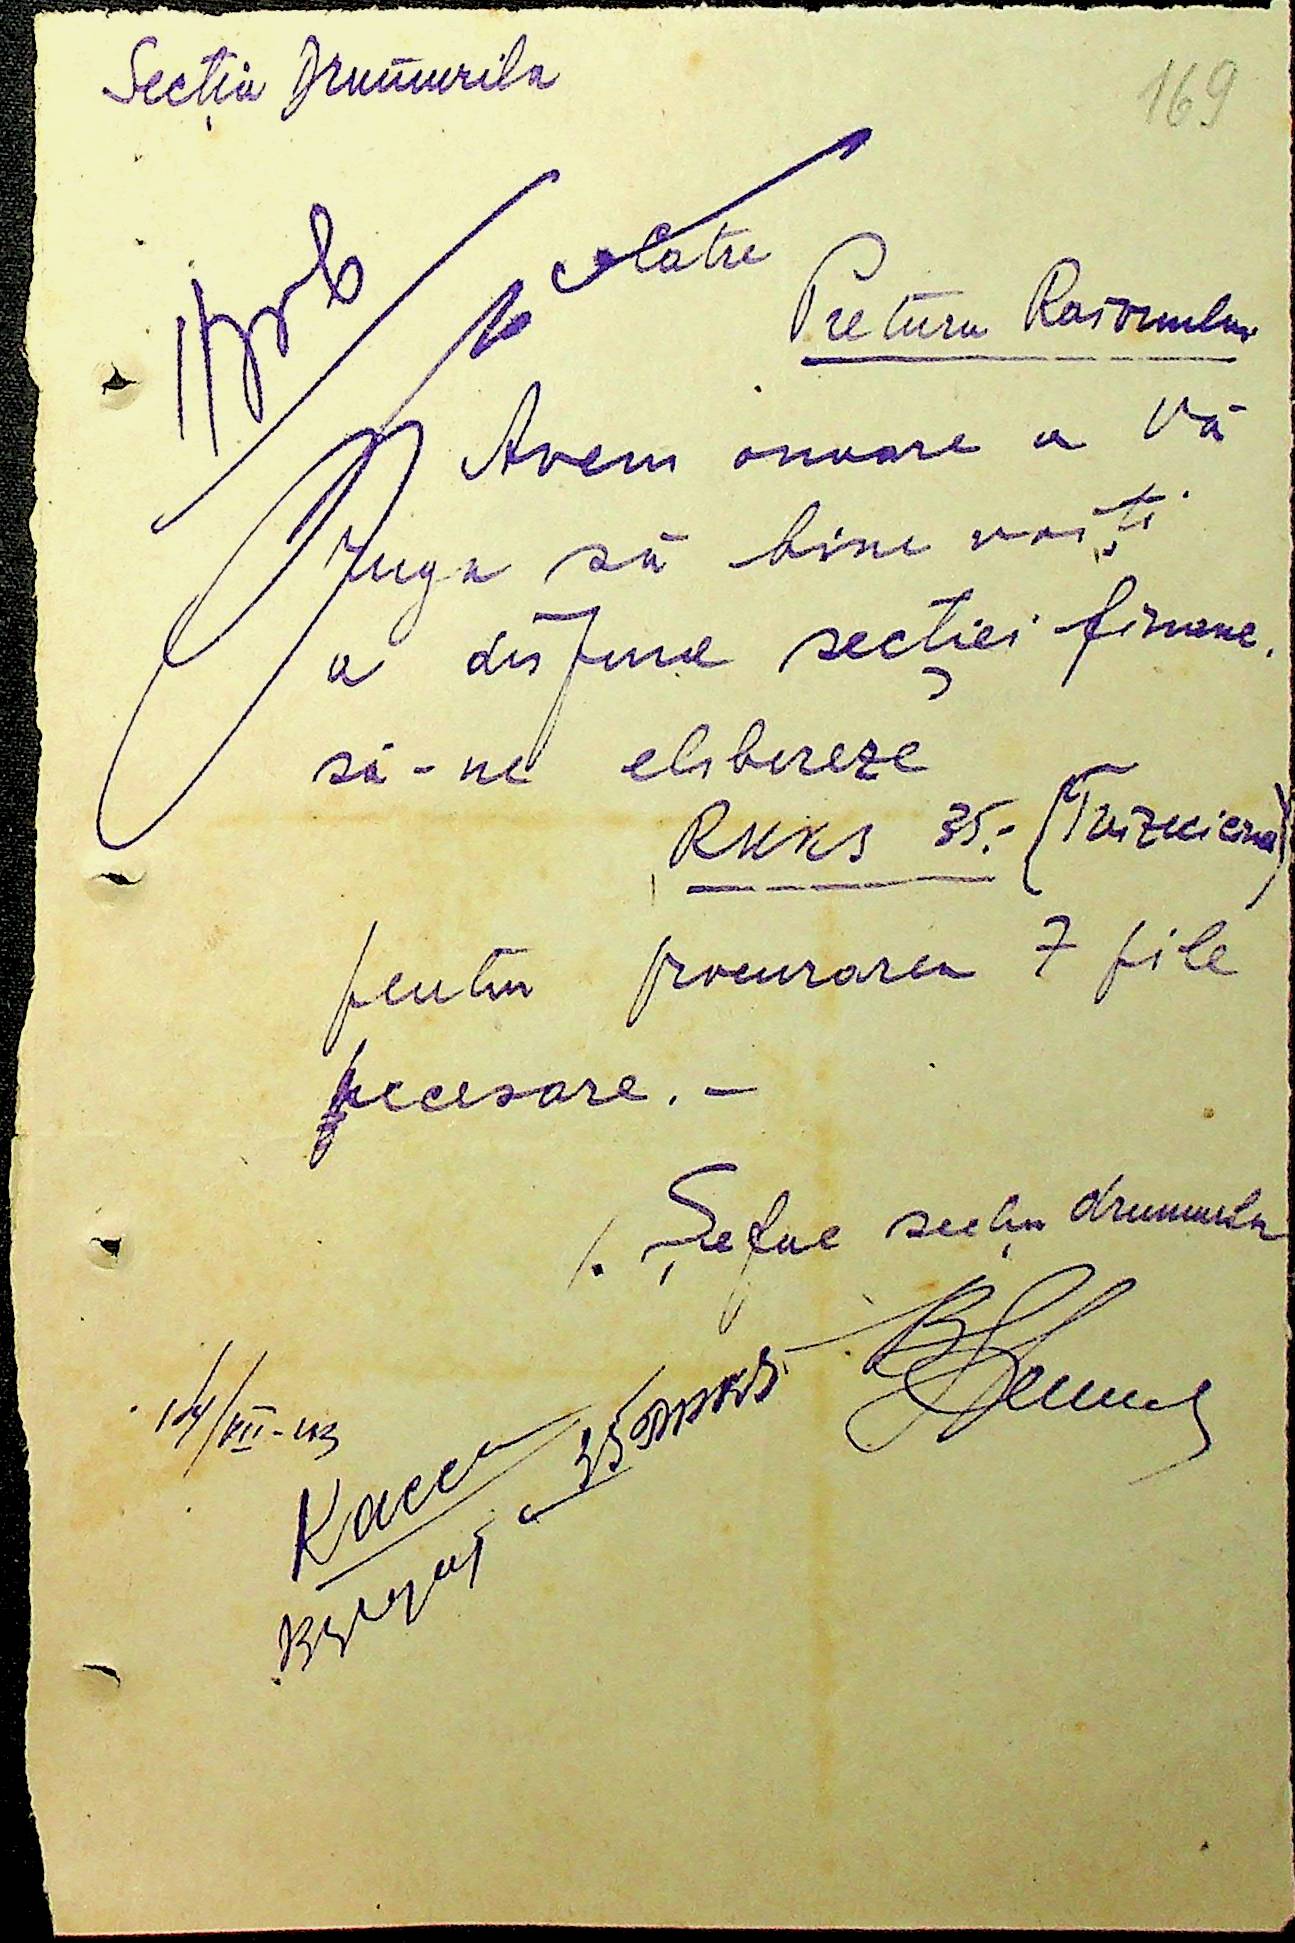 Secția Drumurila
169
Catre
Pretura Raionului
Avem onoare a Vă
ruga să bine voiți
a dispune secției financ.
să-ne elibereze
RKKS 35.- (Treizecicinci)
pentru procurarea 7 pile
necesare. -
/. Șeful secției drumurila
14/VII-43
Касса
Выдать 35 RKKS